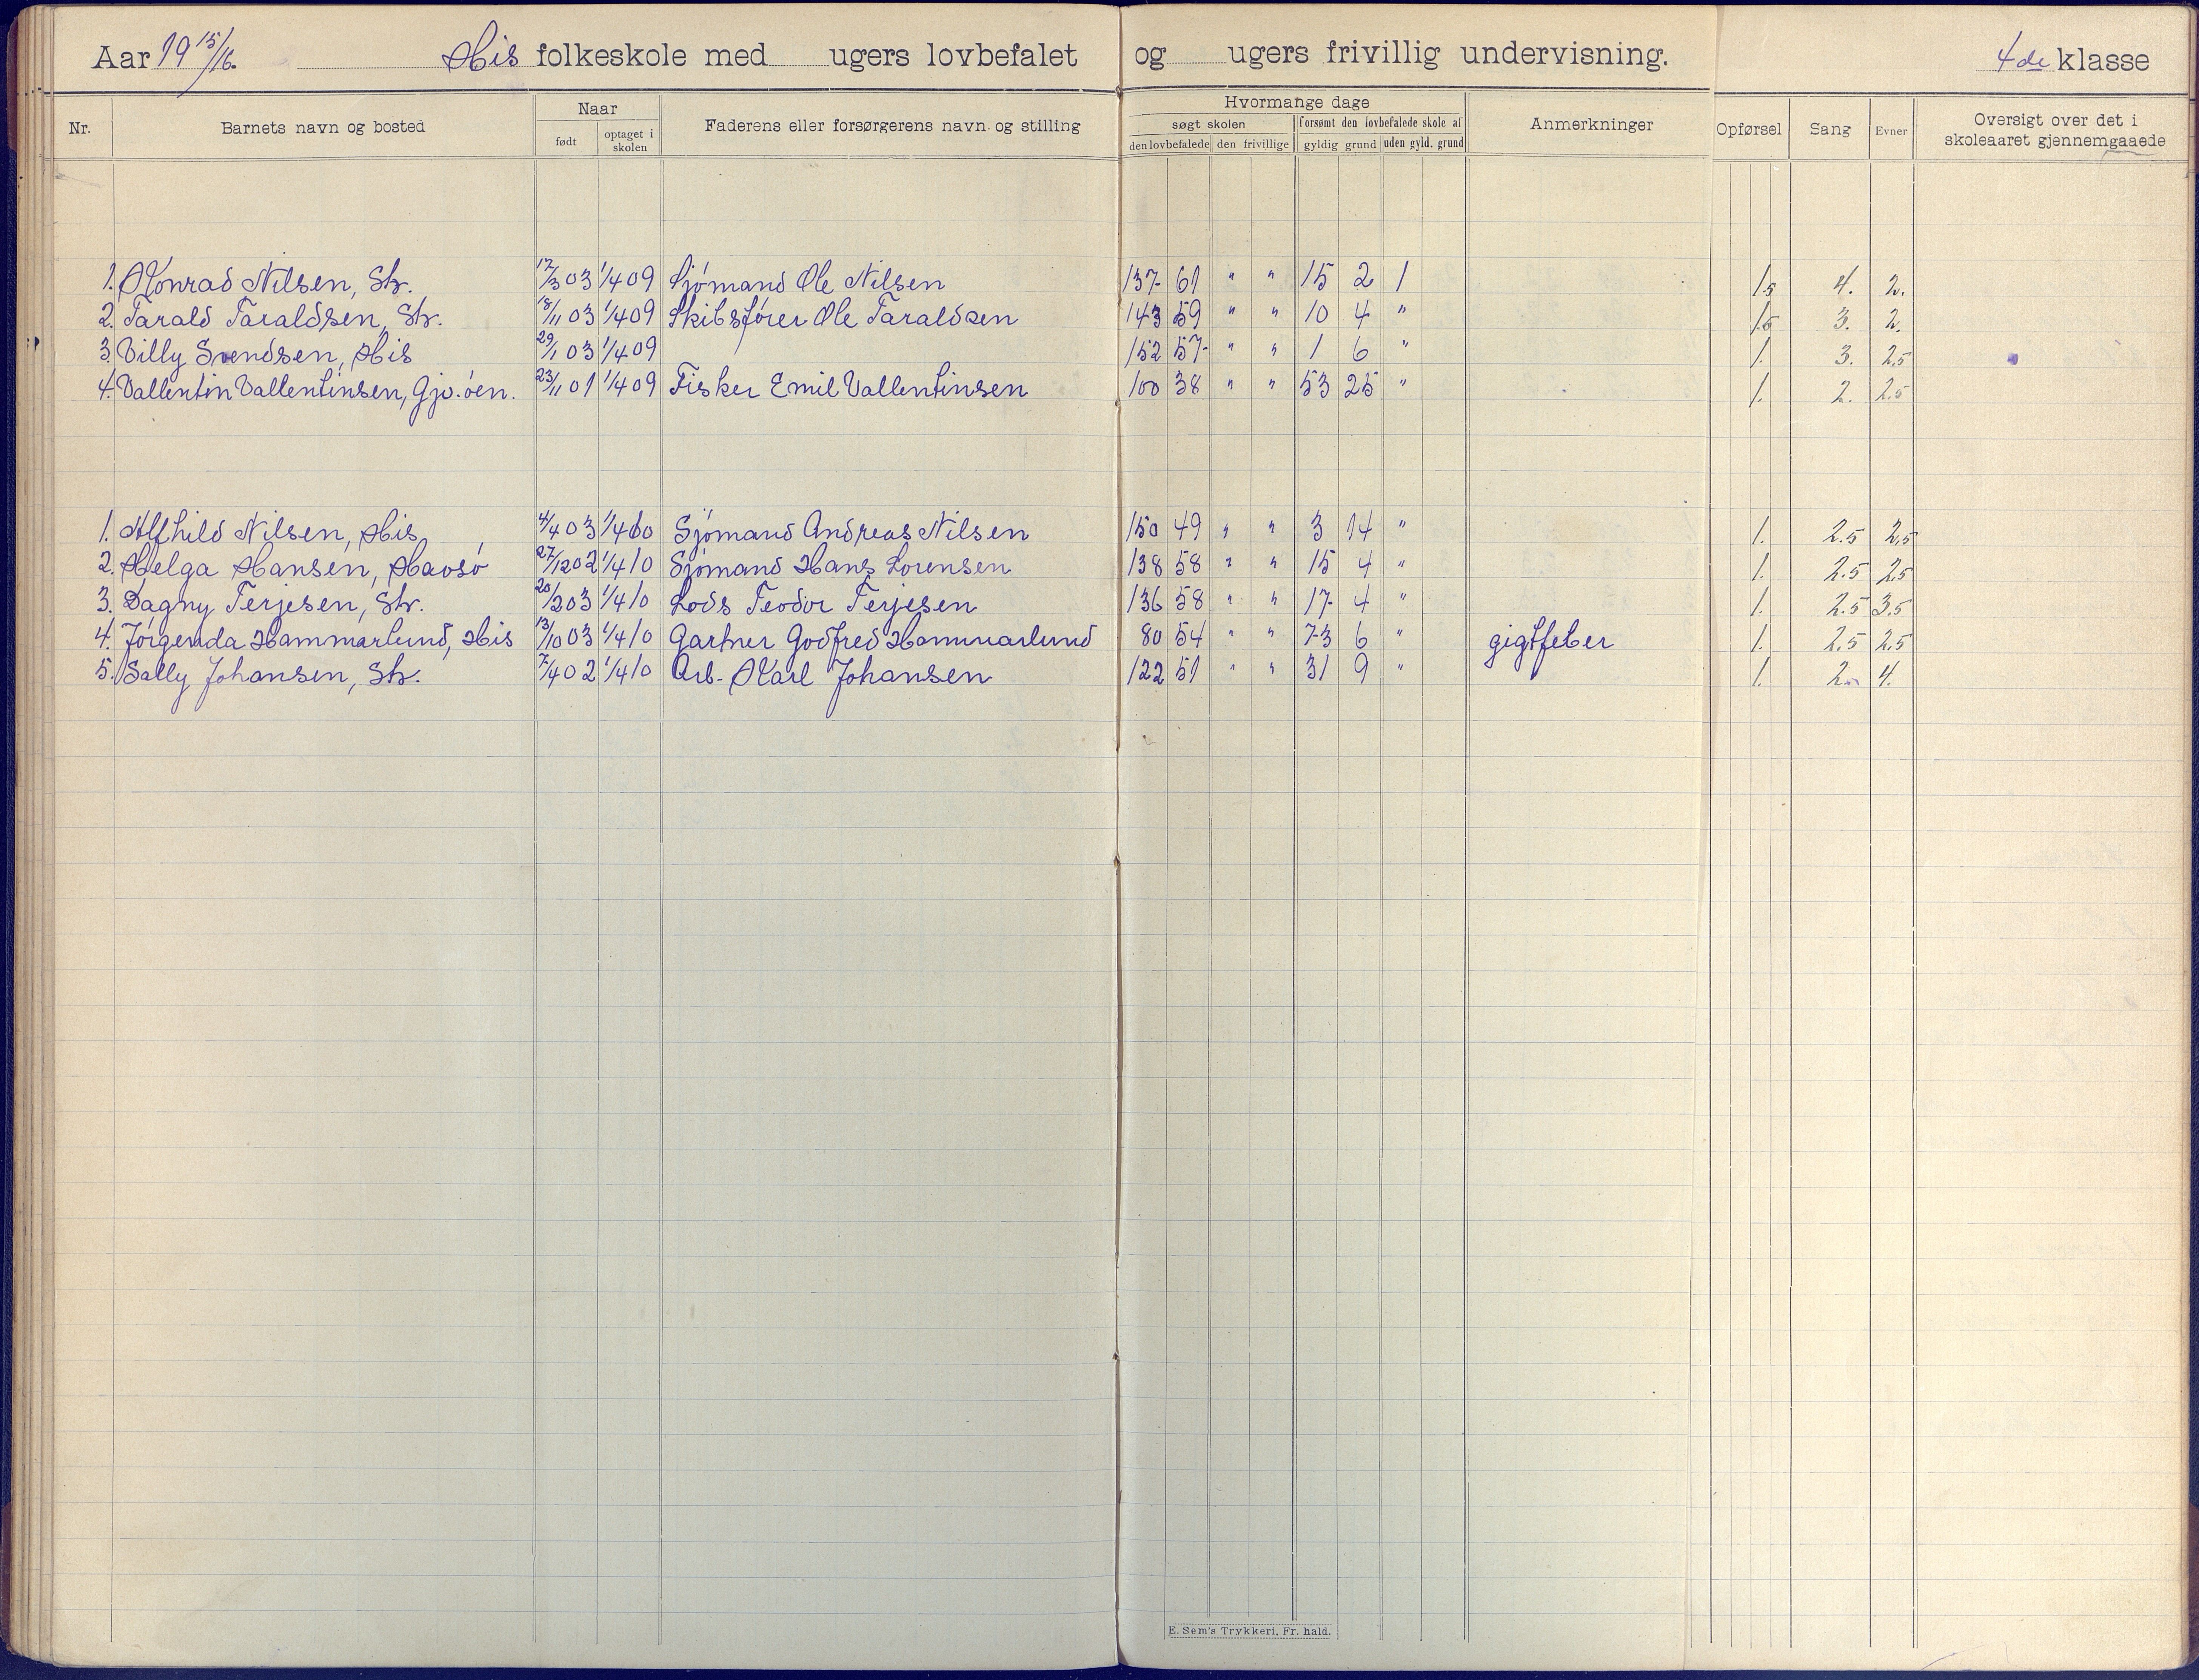 Aar 19 15/16. His folkeskole med ugers lovbefalet og ugers frivillig undervisning. 4de klasse
Nr. Barnets navn og bosted Naar født optaget i skolen Faderens eller forsørgerens navn og stilling Hvormange dage søgt skolen den lovbefalede den frivillige forsømt den lovbefalede skole af gyldig grund uden gyld. grund Anmerkninger Opførsel Sang Evner Oversigt over det i skoleaaret gjennemgaaede
1. Konrad Nilsen, Str. 12/3 03 1/4 09 Sjømand Ole Nilsen 137 61 " " 15 2 1 1.5 4. 2.
2. Tarald Taraldsen, Str. 18/11 03 1/4 09 Skibsfører Ole Taraldsen 143 59 " " 10 4 " 1.5 3. 2.
3. Villy Svendsen, His 29/1 03 1/4 09 152 57 " " 1 6 " 1. 3. 2,5
4. Vallentin Vallentinsen, Gjv.øen. 23/11 01 1/4 09 Fisker Emil Vallentinsen 100 38 " " 53 25 " 1. 2. 2.5
1. Alfhild Nilsen, His 4/4 03 1/4 10 Sjømand Andreas Nilsen 150 49 " " 3 14 " 1. 2.5 2,5
2. Helga Hansen, Havsø 27/12 02 1/4 10 Sjømand Hans Lorensen 138 58 " " 15 4 " 1. 2.5 2,5
3. Dagny Terjesen, Str. 20/2 03 1/4 10 Lods Teodor Terjesen 136 58 " " 17 4 " 1. 2.5 3,5
4. Jørgenda Hammarlund, His 13/10 03 1/4 10 Gartner Godfred Hammarlund 80 54 " " 73 6 " gigtfeber 1. 2.5 2,5
5. Sally Johansen, Str. 7/4 02 1/4 10 Arb. Karl Johansen 122 51 " " 31 9 " 1. 2 4.
E. Sem's Trykkeri, Fr. hald.